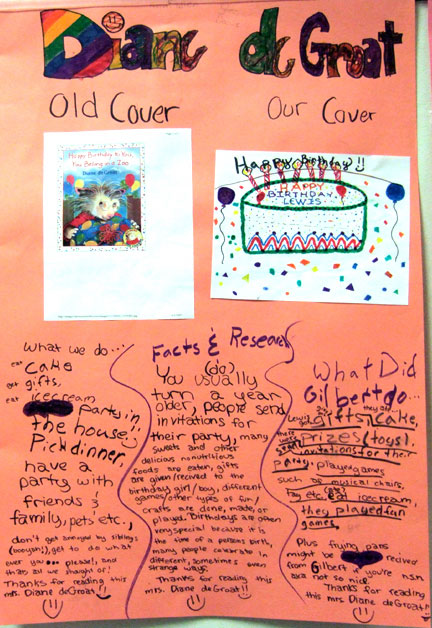 Diane de Groat
Old Cover
Our Cover
Happy Birthday to You,
You Belong in a Zoo
Diane deGroat
Happy Birthday!!
HAPPY
BIRTHDAY
LEWIS
What we do...
eat cake
get gifts,
eat icecream
party in
the house,
Pick dinner,
have a
party with
friends &
family, pets etc.,
don't get annoyed by siblings
(booyah!), get to do what
ever you... please!, and
thats all we thought of!
Thanks for reading this
mrs. Diane deGroat!!
Facts & Research
(do)
You usually
turn a year
older, people send
invitations for
their party, many
sweets and other
delicious nonnutritious
foods are eaten, gifts
are given/recived to the
birthday girl/boy, different
games/other types of fun/
crafts are done, made, or
played. Birthdays are often
very special because it is
the time of a persons birth,
many people celebrate in
different, sometimes even
strange ways.
Thanks for reading this
mrs. Diane deGroat!!
What Did
Gilbert do...
Lewis got gifts, they ate cake,
there were prizes (toys),
invitations for their
party, played games
such as musical chairs,
tag etc. eat icecream,
they played fun
games.
Plus frying pans
might be recived
from Gilbert if you're n.s.n
a.k.a not so nice.
Thanks for reading
this mrs. Diane deGroat!!